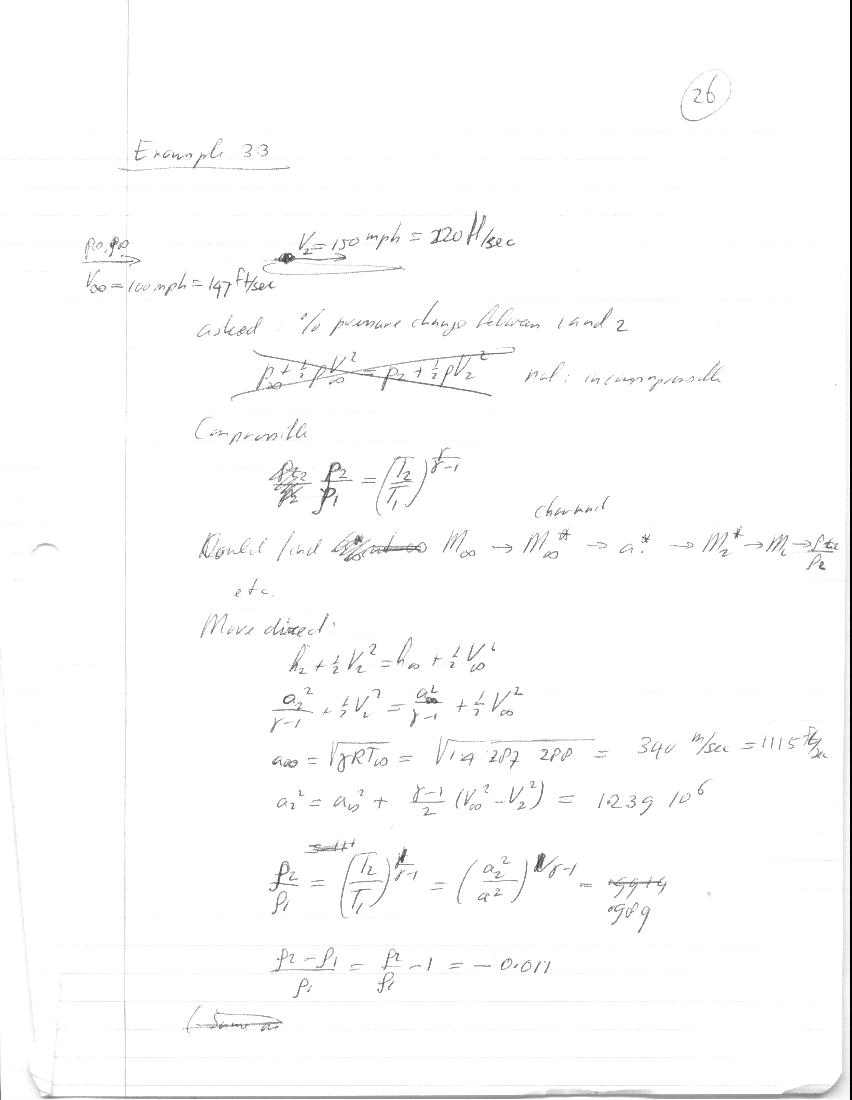 26
Example 33
p∞, ρ∞
V₂ = 150 mph = 220 ft/sec
V∞ = 100 mph = 147 ft/sec
asked : % pressure change between 1 and 2
p∞ + ½ρV∞² = p₂ + ½ρV₂² not : incompressible
Compressible
p₂/p₁ = (T₂/T₁)^(γ/γ-1)
channel
Could find M∞ → M∞* → a* → M₂* → M₂ → ρt₂/ρ₂
etc.
More direct:
h₂ + ½V₂² = h∞ + ½V∞²
a₂²/γ-1 + ½V₂² = a∞²/γ-1 + ½V∞²
a∞ = √γRT∞ = √1.4 287 288 = 340 m/sec = 1115 ft/sec
a₂² = a∞² + γ-1/2 (V∞² - V₂²) = 1.239 10⁶
ρ₂/ρ₁ = (T₂/T₁)^(1/γ-1) = (a₂²/a²)^(1/γ-1) = .989
ρ₂ - ρ₁/ρ₁ = ρ₂/ρ₁ - 1 = - 0.011
(Same as